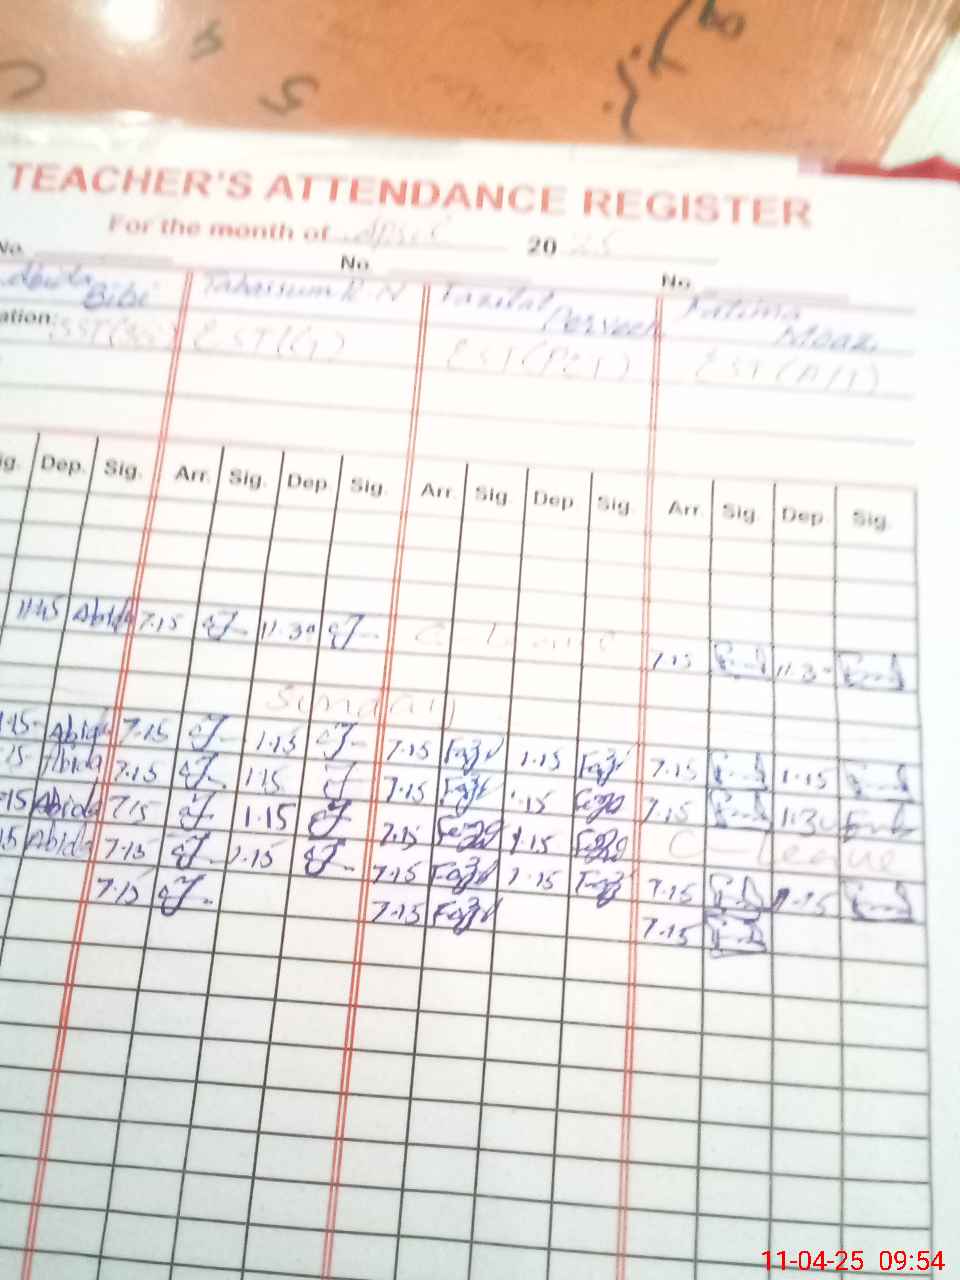 TEACHER'S ATTENDANCE REGISTER
For the month of April 20 25
No. No. No.
Abida Bibi Tabassum R.N Fazilat Perveen Fatima Moaz
ation: SST(Sci) EST(G) EST(PET) EST(A/T)
ig. Dep. Sig. Arr. Sig. Dep. Sig. Arr. Sig. Dep. Sig. Arr. Sig. Dep. Sig.
11:45 Abida 7.15 11.30 C-leave 7.15 11.30
Sunday
1.15 Abida 7.15 1.15 7.15 1.15 7.15 1.15
.15 Abida 7.15 1.15 7.15 1.15 7.15 1.30
.15 Abida 7.15 1.15 7.15 1.15 C-leave
.15 Abida 7.15 1.15 7.15 1.15 7.15 1.15
7.15 7.15 7.15
11-04-25 09:54